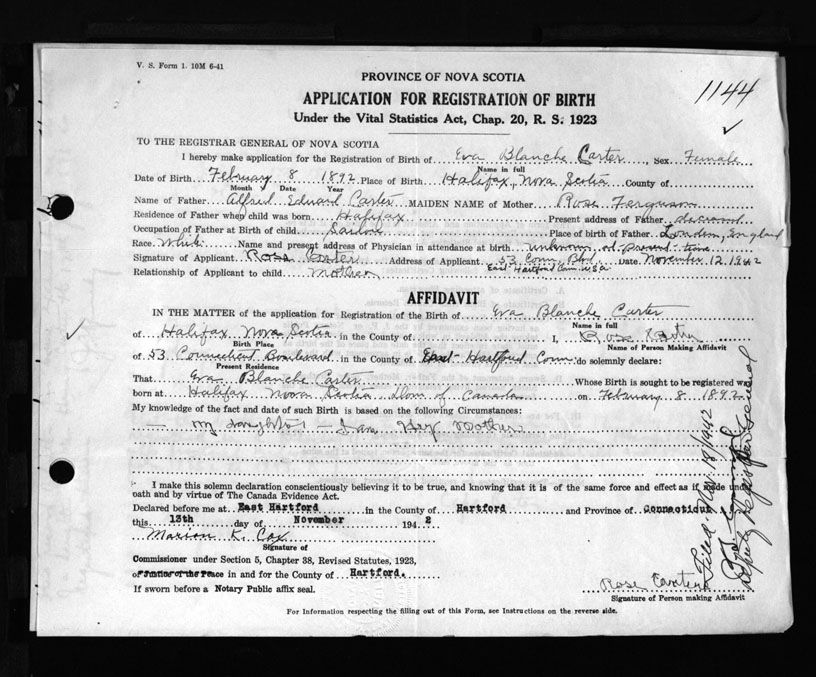 V. S. Form 1. 10M 6-41
PROVINCE OF NOVA SCOTIA
1144
APPLICATION FOR REGISTRATION OF BIRTH
Under the Vital Statistics Act, Chap. 20, R. S. 1923
TO THE REGISTRAR GENERAL OF NOVA SCOTIA
I hereby make application for the Registration of Birth of Eva Blanche Carter, Sex Female
Name in full
Date of Birth February 8 1892 Place of Birth Halifax, Nova Scotia County of
Month Date Year
Name of Father Alfred Edward Carter MAIDEN NAME of Mother Rose Ferguson
Residence of Father when child was born Halifax Present address of Father deceased
Occupation of Father at Birth of child Sailor Place of birth of Father London, England
Race White Name and present address of Physician in attendance at birth unknown at present time
Signature of Applicant Rose Carter Address of Applicant 53 Conn. Blvd. Date November 12 1942
East Hartford Conn. USA
Relationship of Applicant to child Mother
AFFIDAVIT
IN THE MATTER of the application for Registration of the Birth of Eva Blanche Carter
Name in full
of Halifax Nova Scotia in the County of I, Rose Carter
Birth Place Name of Person Making Affidavit
of 53 Connecticut Boulevard in the County of East Hartford Conn do solemnly declare:
Present Residence
That Eva Blanche Carter Whose Birth is sought to be registered was
born at Halifax Nova Scotia Dom of Canada on February 8 1892
My knowledge of the fact and date of such Birth is based on the following Circumstances:
— My daughter — I am Her Mother
I make this solemn declaration conscientiously believing it to be true, and knowing that it is of the same force and effect as if made under
oath and by virtue of The Canada Evidence Act.
Declared before me at East Hartford in the County of Hartford and Province of Connecticut
this 13th day of November 1942
Marion K. Cox
Signature of
Commissioner under Section 5, Chapter 38, Revised Statutes, 1923,
or Justice of the Peace in and for the County of Hartford.
If sworn before a Notary Public affix seal.
Rose Carter
Signature of Person making Affidavit
For Information respecting the filling out of this Form, see Instructions on the reverse side.
Filed Nov. 18/1942
Deputy Registrar General